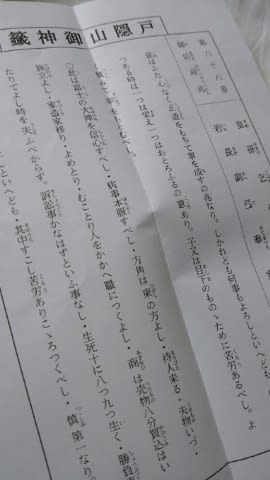 戸隠山御神籤
十八番
是はふた心なく正道をもちて事を成すの兆なり。しかれども何事もよろしといへども
つある時は一つは栄え一つはおとろふるの意あり。子又は目下のものゝために苦労あるべし。よ
て事を
〇此は富士の大神を信心すべし・病事本服すべし・方角は東の方よし・待人来る・失物いづ・
旅立よし・家造家移り・よめとり・むことり人をかかへ職につくよし・商は売物八分買込はい
たりてよし時を失ふべからず。訴訟事かなはずといふ事なし・生死十に八つ九つ生く・勝負
といへども・其中すこし苦労ありこゝろつくべし・慎第一なり。